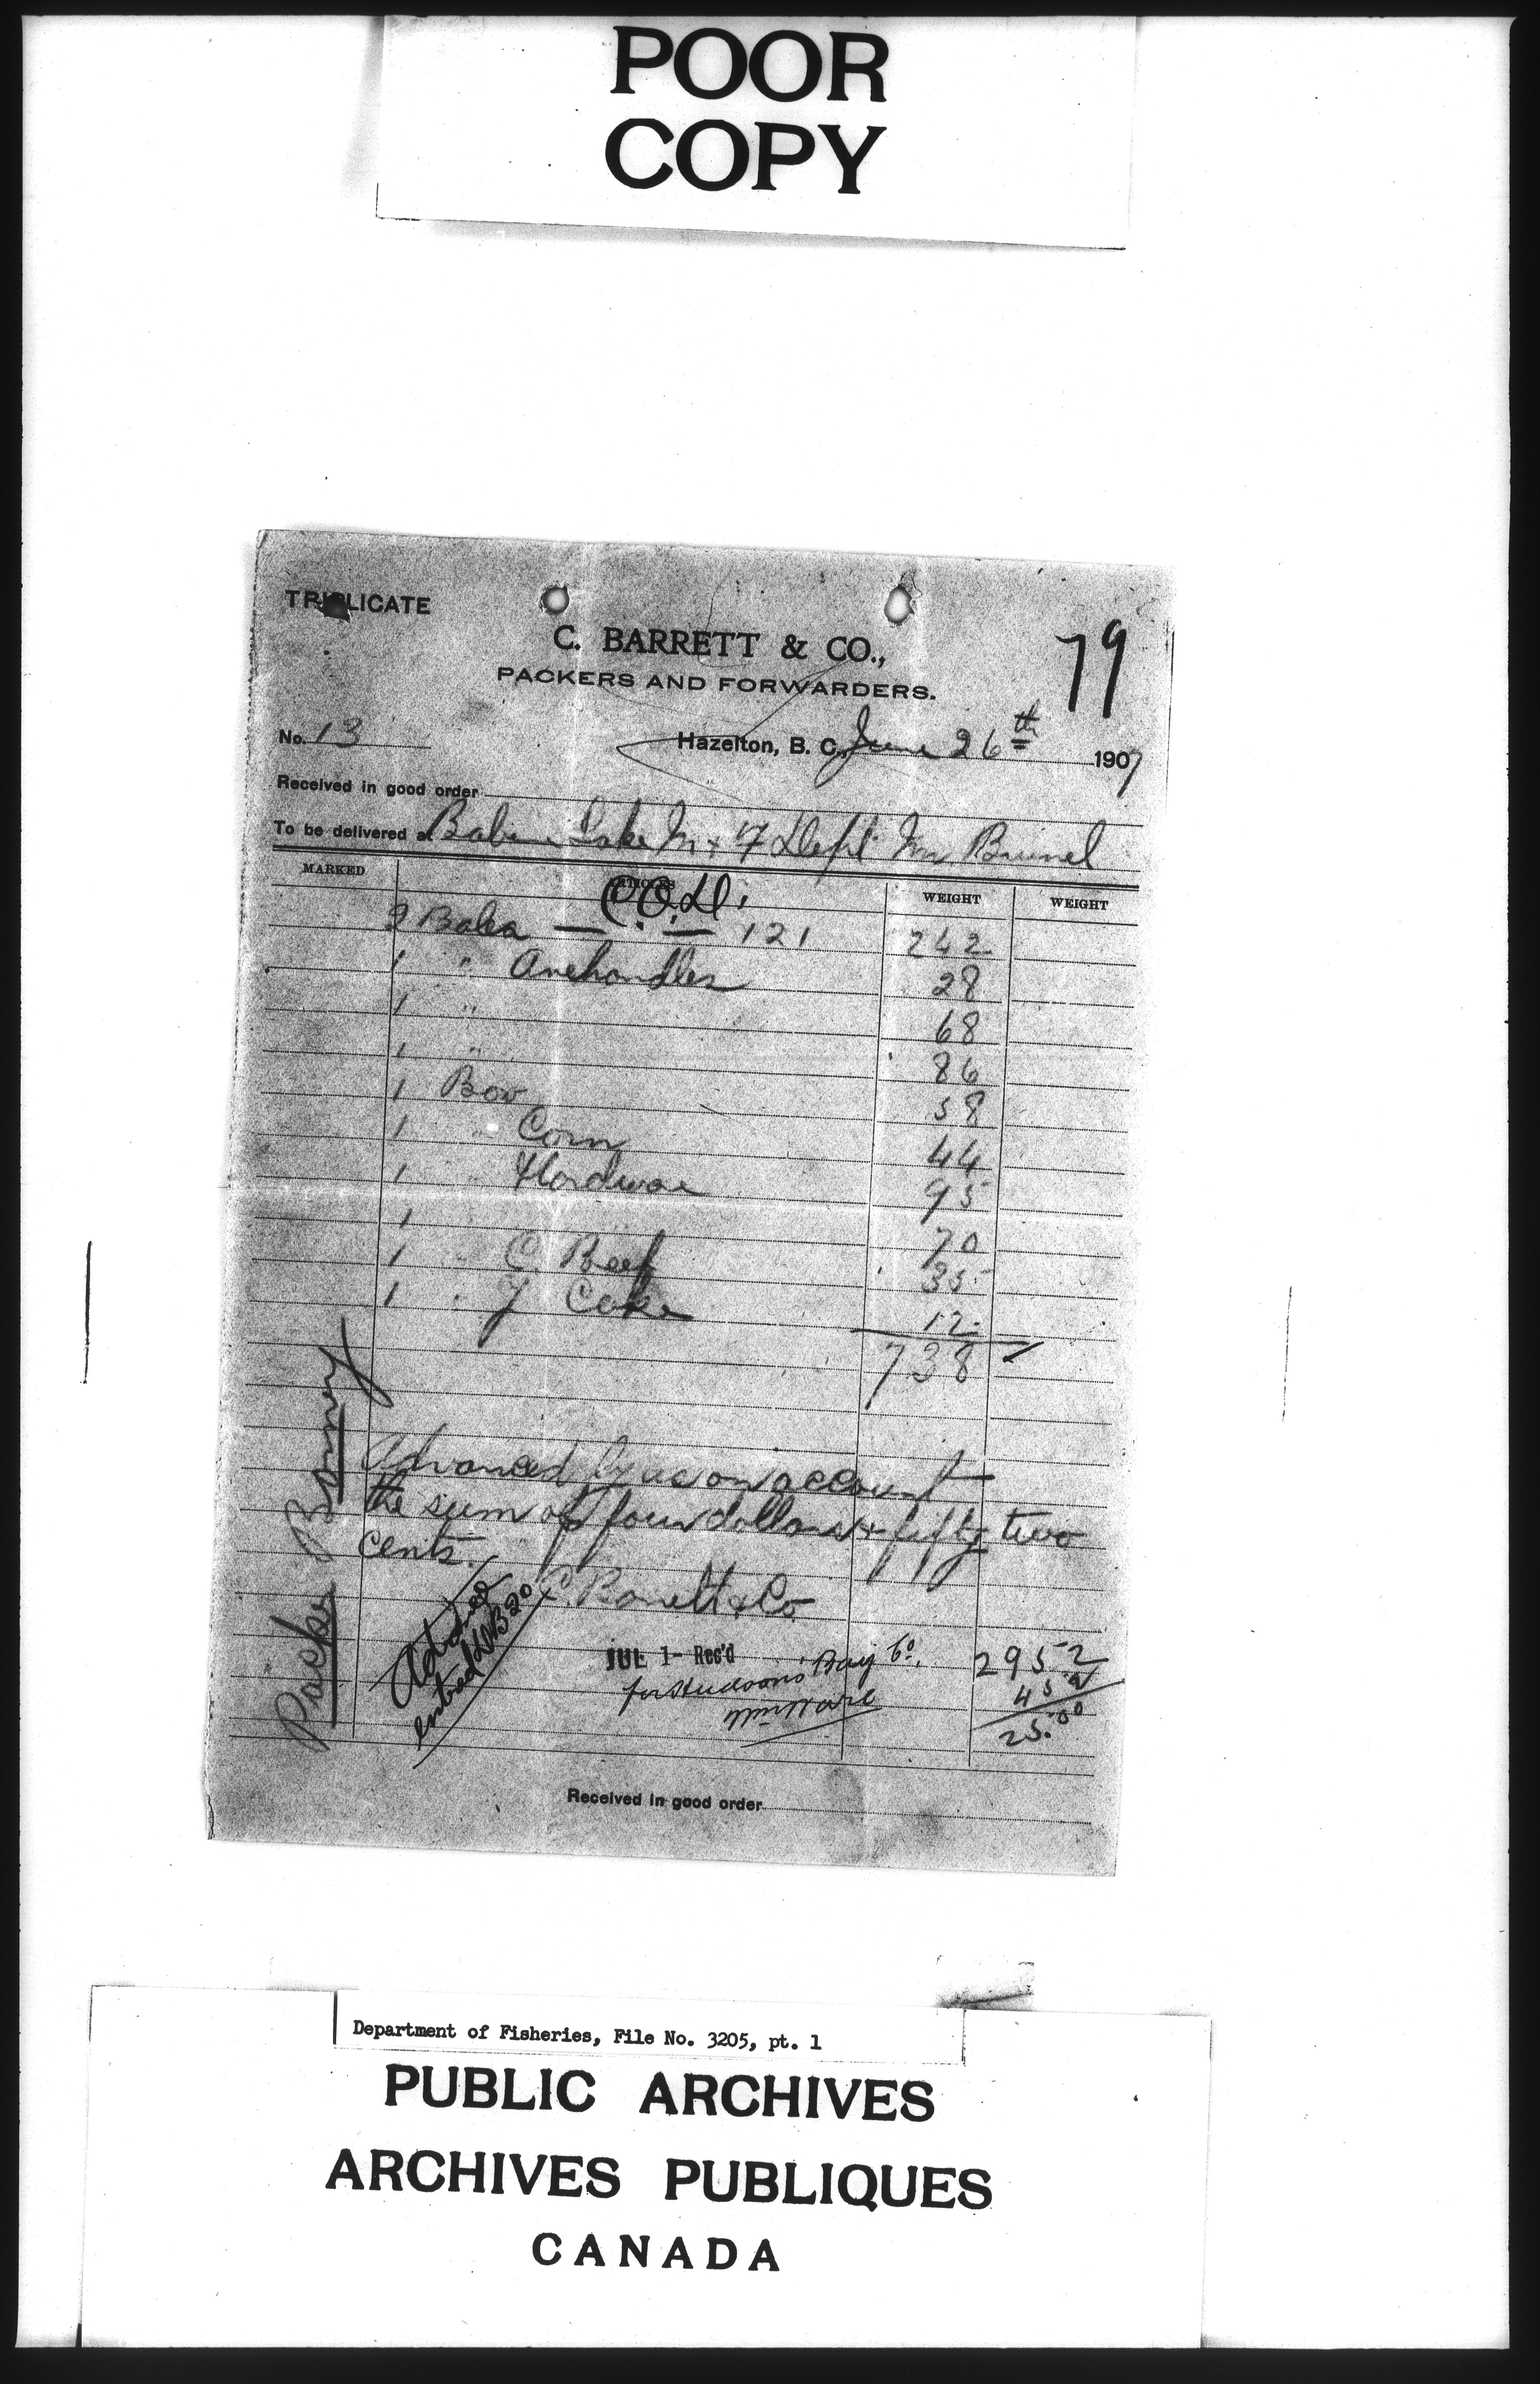 POOR
COPY
TRIPLICATE
C. BARRETT & CO.,
79
PACKERS AND FORWARDERS.
No. 13
Hazelton, B. C. June 26th 1907
Received in good order
To be delivered at Babine Lake M & F Dept Brunel
MARKED WEIGHT WEIGHT
C.O.D.
2 Bales 121 242
1 " Axehandles 28
1 " 68
1 " 86
1 Box 58
1 " Corn 44
1 Hardware 95
1 70
1 " C. Beef 35
1 " Y Cake 12
738 ✓
Advanced by us on account
the sum of four dollars & fifty two
cents.
C. Barrett & Co
Packs
entred DB 20
JUL 1- Rec'd
for Hudsons' Bay Co.
Wm Ware
2952
452
25.00
Received in good order
Department of Fisheries, File No. 3205, pt. 1
PUBLIC ARCHIVES
ARCHIVES PUBLIQUES
CANADA